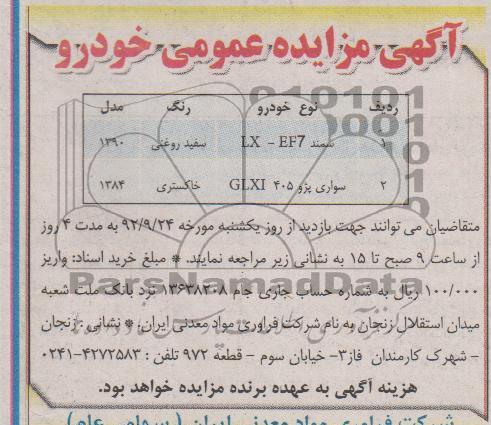 آگهی مزایده عمومی خودرو
ردیف نوع خودرو رنگ مدل
۱ سمند LX - EF7 سفید روغنی ۱۳۹۰
۲ سواری پژو ۴۰۵ GLXI خاکستری ۱۳۸۴
متقاضیان می توانند جهت بازدید از روز یکشنبه مورخه ۹۲/۹/۲۴ به مدت ۴ روز
از ساعت ۹ صبح تا ۱۵ به نشانی زیر مراجعه نمایند. * مبلغ خرید اسناد: واریز
۱۰۰/۰۰۰ ریال به شماره حساب جاری جام ۱۳۶۳۸۲۰۸ نزد بانک ملت شعبه
میدان استقلال زنجان به نام شرکت فراوری مواد معدنی ایران. * نشانی: زنجان
- شهرک کارمندان فاز۳- خیابان سوم - قطعه ۹۷۲ تلفن : ۴۲۷۲۵۸۳-۰۲۴۱
هزینه آگهی به عهده برنده مزایده خواهد بود.
شرکت فراوری مواد معدنی ایران ( سهامی عام )
ParsNamadData